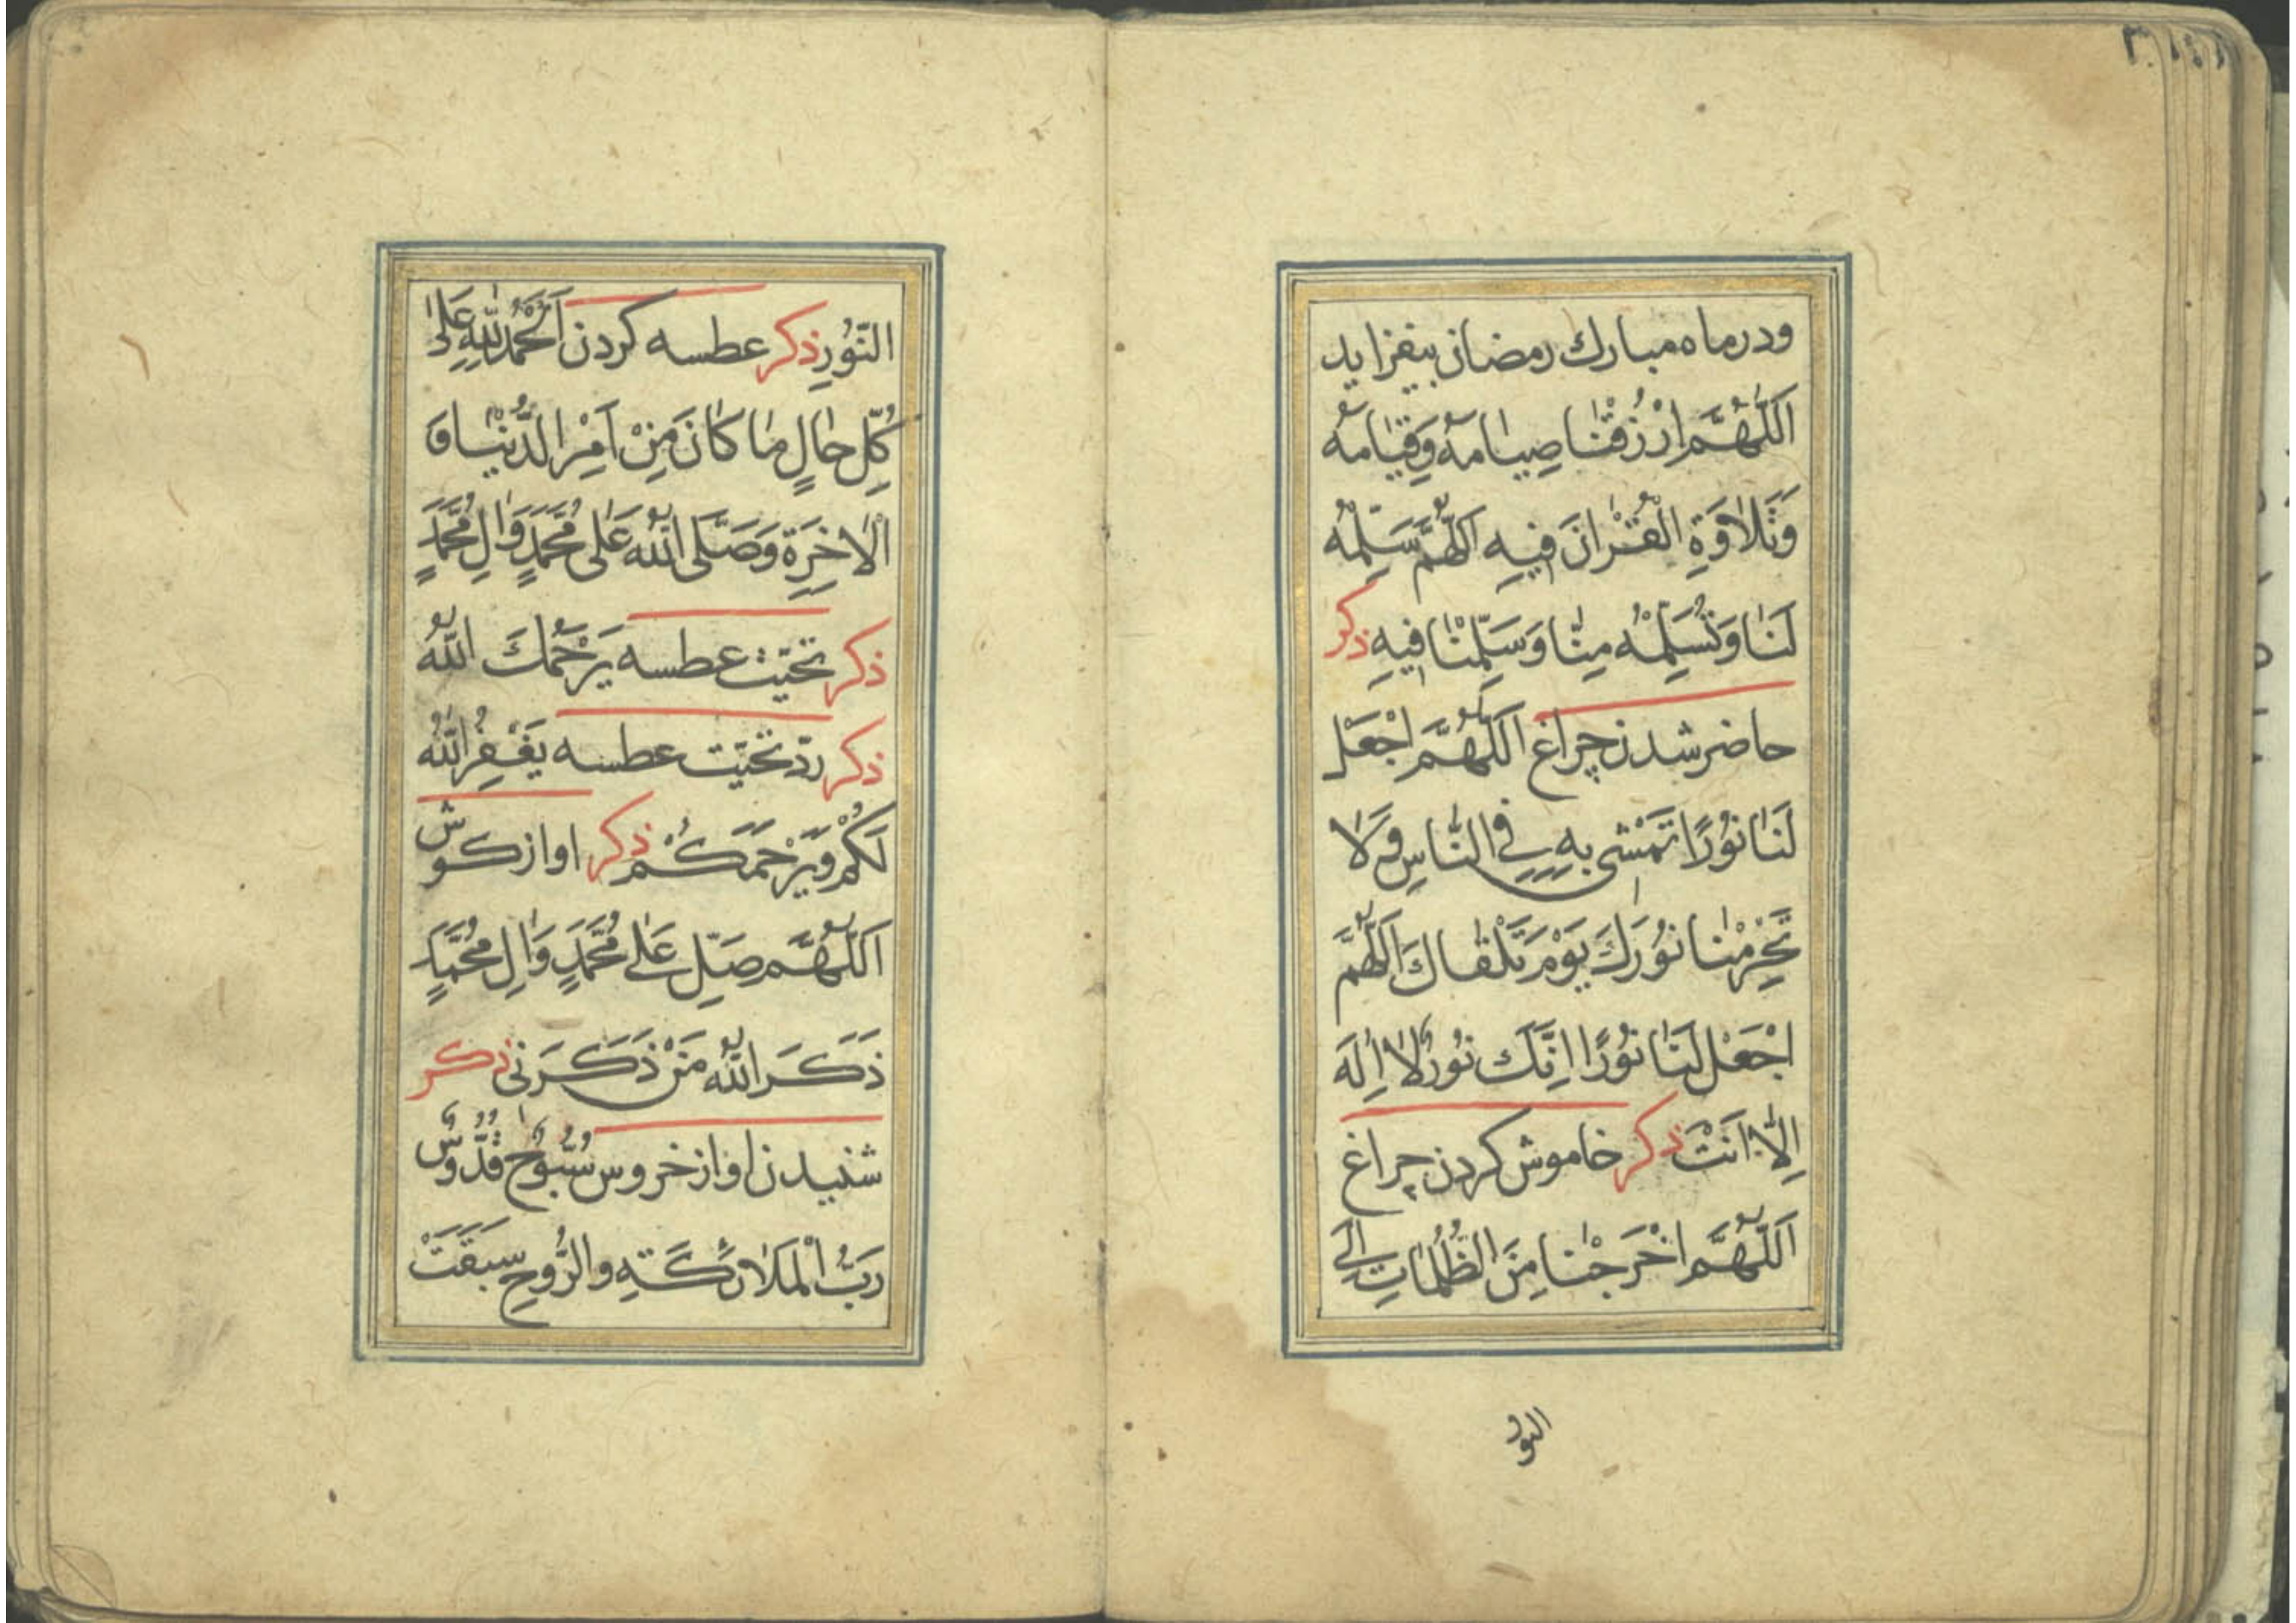 ودر ماه مبارك رمضان بیفزاید
اَللّٰهُمَّ ارْزُقْنٰا صِیٰامَهُ وَقِیٰامَهُ
وَتَلاٰوَةِ الْقُرْانَ فِیهِ اَللّٰهُمَّ سَلِّمْهُ
لَنٰا وَتُسَلِّمْهُ مِنّٰا وَسَلِّمْنٰا فِیهِ ذکر
حاضر شدن چراغ اَللّٰهُمَّ اجْعَلْ
لَنٰا نُوْرًا تَمْشی بِهِ فِی النّٰاسِ وَلاٰ
تَحْرِمْنٰا نُوْرَكَ یَوْمَ تَلْقٰاكَ اَللّٰهُمَّ
اجْعَلْ لَنٰا نُوْرًا اِنَّكَ نُوْرٌ لاٰ اِلٰهَ
اِلّٰا اَنْتَ ذکر خاموش کردن چراغ
اَللّٰهُمَّ اخْرَجْنٰا مِنَ الظُّلُمٰاتِ اِلَی
النور
النُّوْرِ ذکر عطسه کردن اَلْحَمْدُ لِلّٰهِ عَلیٰ
کُلِّ حٰالٍ مٰا کٰانَ مِنْ اَمْرِ الدُّنْیٰا وَ
الْاٰخِرَةِ وَصَلَّی اللّٰهُ عَلٰی مُحَمَّدٍ وَاٰلِ مُحَمَّدٍ
ذکر تحیّت عطسه یَرْحَمُكَ اللّٰهُ
ذکر ردّ تحیّت عطسه یَغْفِرُ اللّٰهُ
لَکُمْ وَیَرْحَمَکُمْ ذکر اواز کوش
اَللّٰهُمَّ صَلِّ عَلٰی مُحَمَّدٍ وَاٰلِ مُحَمَّدٍ
ذَکَرَ اللّٰهُ مَنْ ذَکَرَنی ذکر
شنیدن اواز خروس سُبُّوحٌ قُدُّوسٌ
رَبُّ الْمَلاٰئِکَةِ وَالرُّوحِ سَبَقَتْ